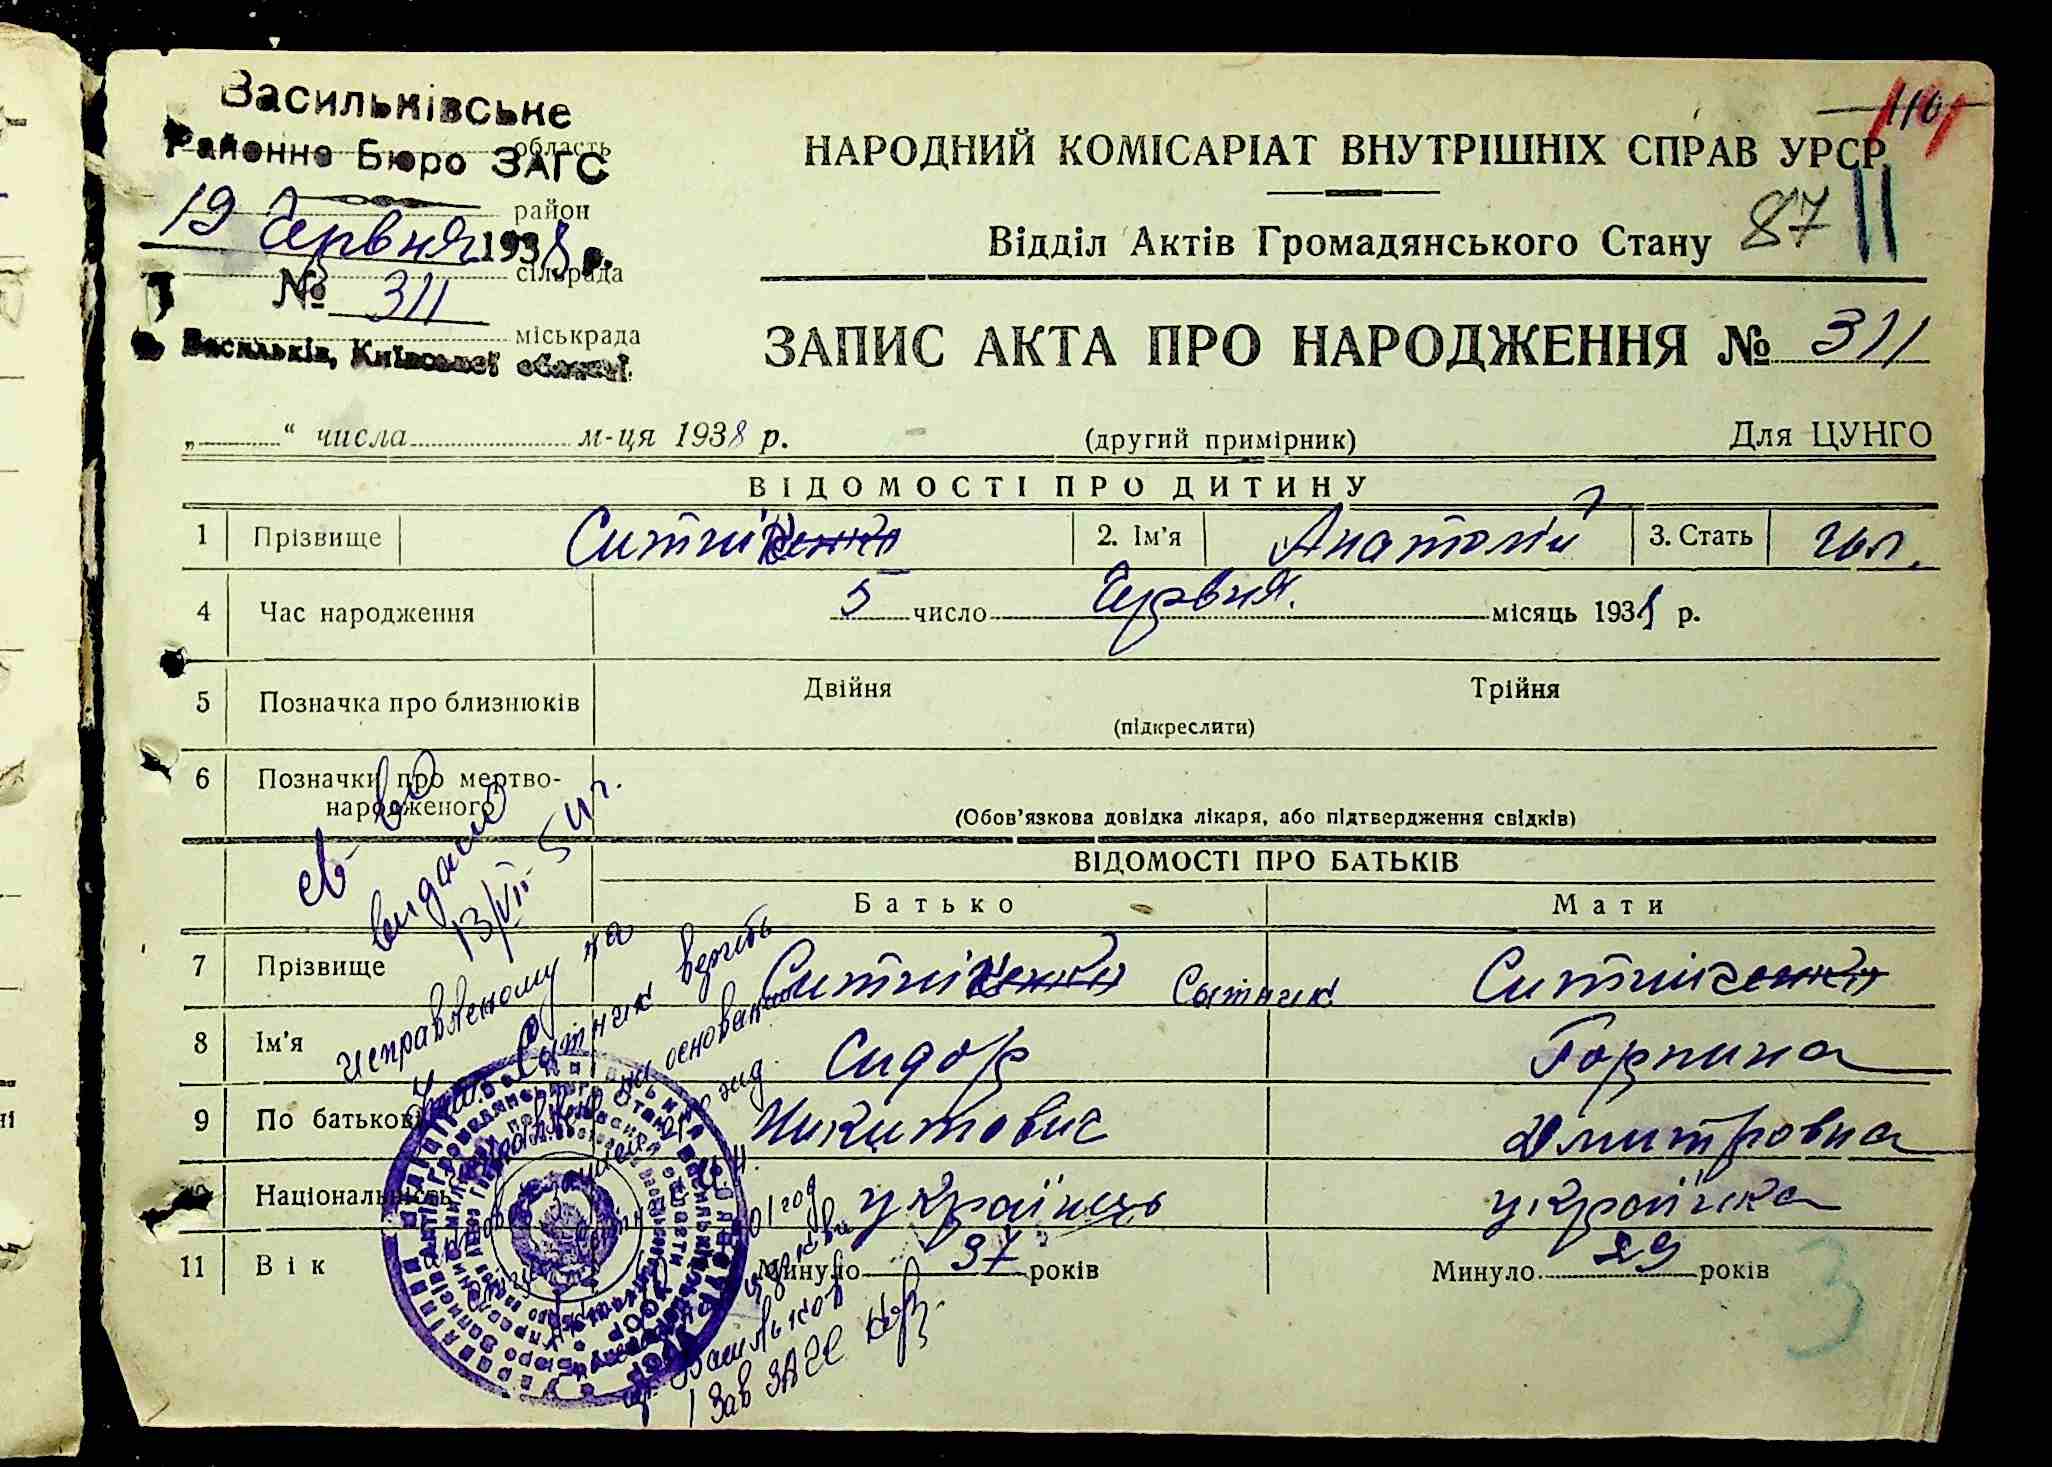 Васильківське
Районне Бюро ЗАГС
область
район
19 Червня 1938 р.
сільрада
№ 311
міськрада
м. Васильків, Київської області
110
НАРОДНИЙ КОМІСАРІАТ ВНУТРІШНІХ СПРАВ УРСР
Відділ Актів Громадянського Стану 87 11
ЗАПИС АКТА ПРО НАРОДЖЕННЯ № 311
„ “ числа м-ця 1938 р. (другий примірник) Для ЦУНГО
ВІДОМОСТІ ПРО ДИТИНУ
1 Прізвище Ситніченко 2. Ім'я Анатолій 3. Стать чол.
4 Час народження 5 число Червня. місяць 1938 р.
5 Позначка про близнюків Двійня Трійня
(підкреслити)
6 Позначки про мертво-
народженого
(Обов'язкова довідка лікаря, або підтвердження свідків)
св-во
видано
13/VII-54 г.
ВІДОМОСТІ ПРО БАТЬКІВ
Батько Мати
7 Прізвище Ситніченко Сытник Ситніченко
8 Ім'я Сидор Горпина
9 По батькові Никитович Дмитровна
10 Національність українець українка
11 Вік Минуло 37 років Минуло 29 років
исправленому на
Сытник верить
на основании
1901 год
церкви
г. Васильков
Зав ЗАГС
3